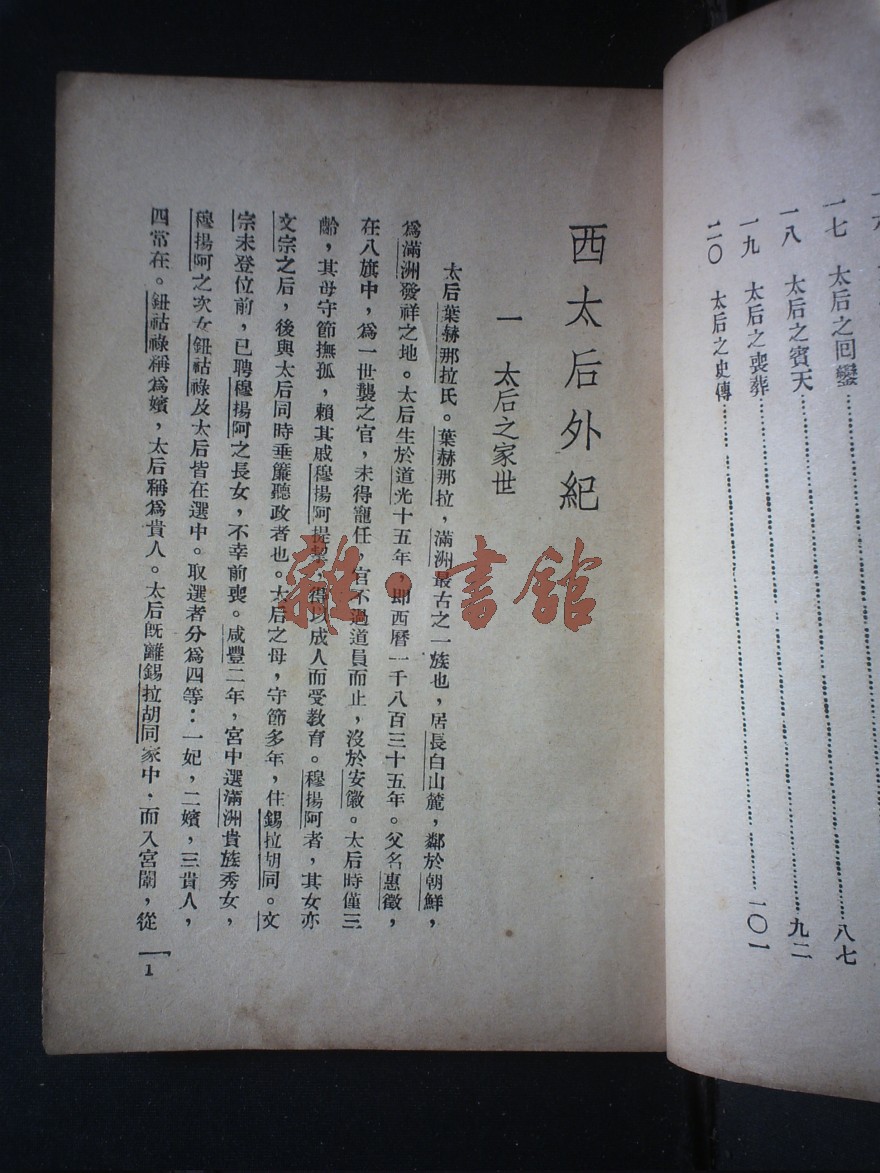 一七 太后之回鑾……八七
一八 太后之賓天……九二
一九 太后之喪葬……一〇一
二〇 太后之史傳……
西太后外紀
一 太后之家世
太后葉赫那拉氏。葉赫那拉，滿洲最古之一族也，居長白山麓，鄰於朝鮮，
爲滿洲發祥之地。太后生於道光十五年，即西曆一千八百三十五年。父名惠徵，
在八旗中，爲一世襲之官，未得寵任，官不過道員而止，沒於安徽。太后時僅三
齡，其母守節撫孤，賴其戚穆揚阿提挈，得以成人而受教育。穆揚阿者，其女亦
文宗之后，後與太后同時垂簾聽政者也。太后之母，守節多年，住錫拉胡同。文
宗未登位前，已聘穆揚阿之長女，不幸前喪。咸豐二年，宮中選滿洲貴族秀女，
穆揚阿之次女鈕祜祿及太后皆在選中。取選者分爲四等：一妃，二嬪，三貴人，
四常在。鈕祜祿稱爲嬪，太后稱爲貴人。太后既離錫拉胡同家中，而入宮闈，從
1
雜·書館